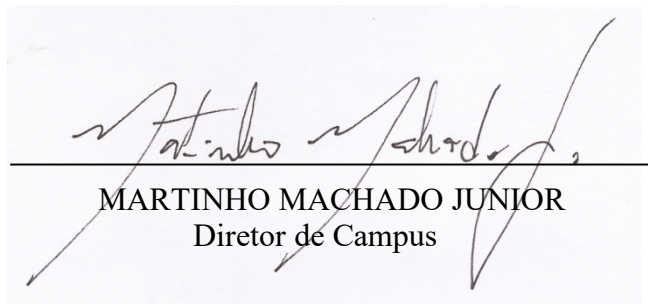 Martinho Machado Jr.
MARTINHO MACHADO JUNIOR
Diretor de Campus